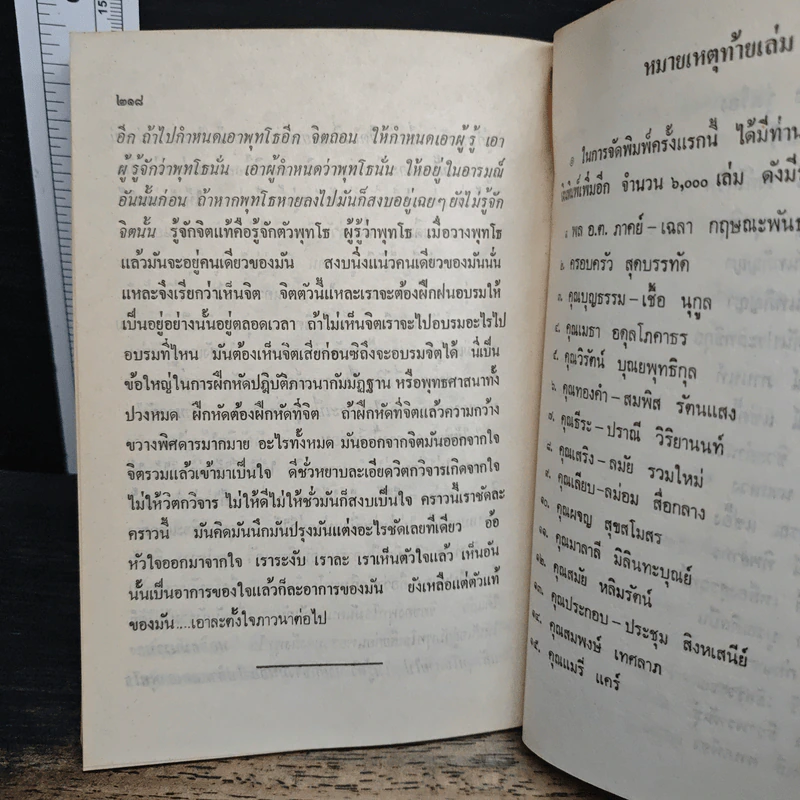 ๒๑๘
อีก ถ้าไปกำหนดเอาพุทโธอีก จิตถอน ให้กำหนดเอาผู้รู้ เอา
ผู้รู้จักว่าพุทโธนั่น เอาผู้กำหนดว่าพุทโธนั้น ให้อยู่ในอารมณ์
อันนั้นก่อน ถ้าหากพุทโธหายลงไปมันก็สงบอยู่เฉยๆ ยังไม่รู้จัก
จิตนั้น รู้จักจิตแท้คือรู้จักตัวพุทโธ ผู้รู้ว่าพุทโธ เมื่อวางพุทโธ
แล้วมันจะอยู่คนเดียวของมัน สงบนิ่งแน่วคนเดียวของมันนั่น
แหละจึงเรียกว่าเห็นจิต จิตตัวนี้แหละเราจะต้องฝึกฝนอบรมให้
เป็นอยู่อย่างนั้นอยู่ตลอดเวลา ถ้าไม่เห็นจิตเราจะไปอบรมอะไรไป
อบรมที่ไหน มันต้องเห็นจิตเสียก่อนซิถึงจะอบรมจิตได้ นี่เป็น
ข้อใหญ่ในการฝึกหัดปฏิบัติภาวนากัมมัฏฐาน หรือพุทธศาสนาทั้ง
ปวงหมด ฝึกหัดต้องฝึกหัดที่จิต ถ้าฝึกหัดที่จิตแล้วความกว้าง
ขวางพิศดารมากมาย อะไรทั้งหมด มันออกจากจิตมันออกจากใจ
จิตรวมแล้วเข้ามาเป็นใจ ดีชั่วหยาบละเอียดวิตกวิจารเกิดจากใจ
ไม่ให้วิตกวิจาร ไม่ให้ดีไม่ให้ชั่วมันก็สงบเป็นใจ คราวนี้เราชัดละ
คราวนี้ มันคิดมันนึกมันปรุงมันแต่งอะไรชัดเลยทีเดียว อ้อ
หัวใจออกมาจากใจ เราระงับ เราละ เราเห็นตัวใจแล้ว เห็นอัน
นั้นเป็นอาการของใจแล้วก็ละอาการของมัน ยังเหลือแต่ตัวแท้
ของมัน....เอาละตั้งใจภาวนาต่อไป
หมายเหตุท้ายเล่ม
ในการจัดพิมพ์ครั้งแรกนี้ ได้มีท่าน
พิมพ์เพิ่มอีก จำนวน ๖,๐๐๐ เล่ม ดังมี
๑. พล อ.ต. ภาคย์-เฉลา กฤษณะพันธ
๒. ครอบครัว สุดบรรทัด
๓. คุณบุญธรรม-เชื้อ นุกูล
๔. คุณเมธา อดุลโภคาธร
๕. คุณวิรัตน์ บุณยพุทธิกุล
๖. คุณทองคำ-สมพิส รัตนแสง
๗. คุณธีระ-ปราณี วิริยานนท์
๘. คุณเสริง-สมัย รวมใหม่
๙. คุณเลียบ-ลม่อม สื่อกลาง
๑๐. คุณผจญ สุขสโมสร
๑๑. คุณมาลาลี มิลินทะบุณย์
๑๒. คุณสมัย หลิมรัตน์
๑๓. คุณประกอบ-ประชุม สิงหเสนีย์
๑๔. คุณสมพงษ์ เทศลาภ
๑๕. คุณแมรี่ แคร์